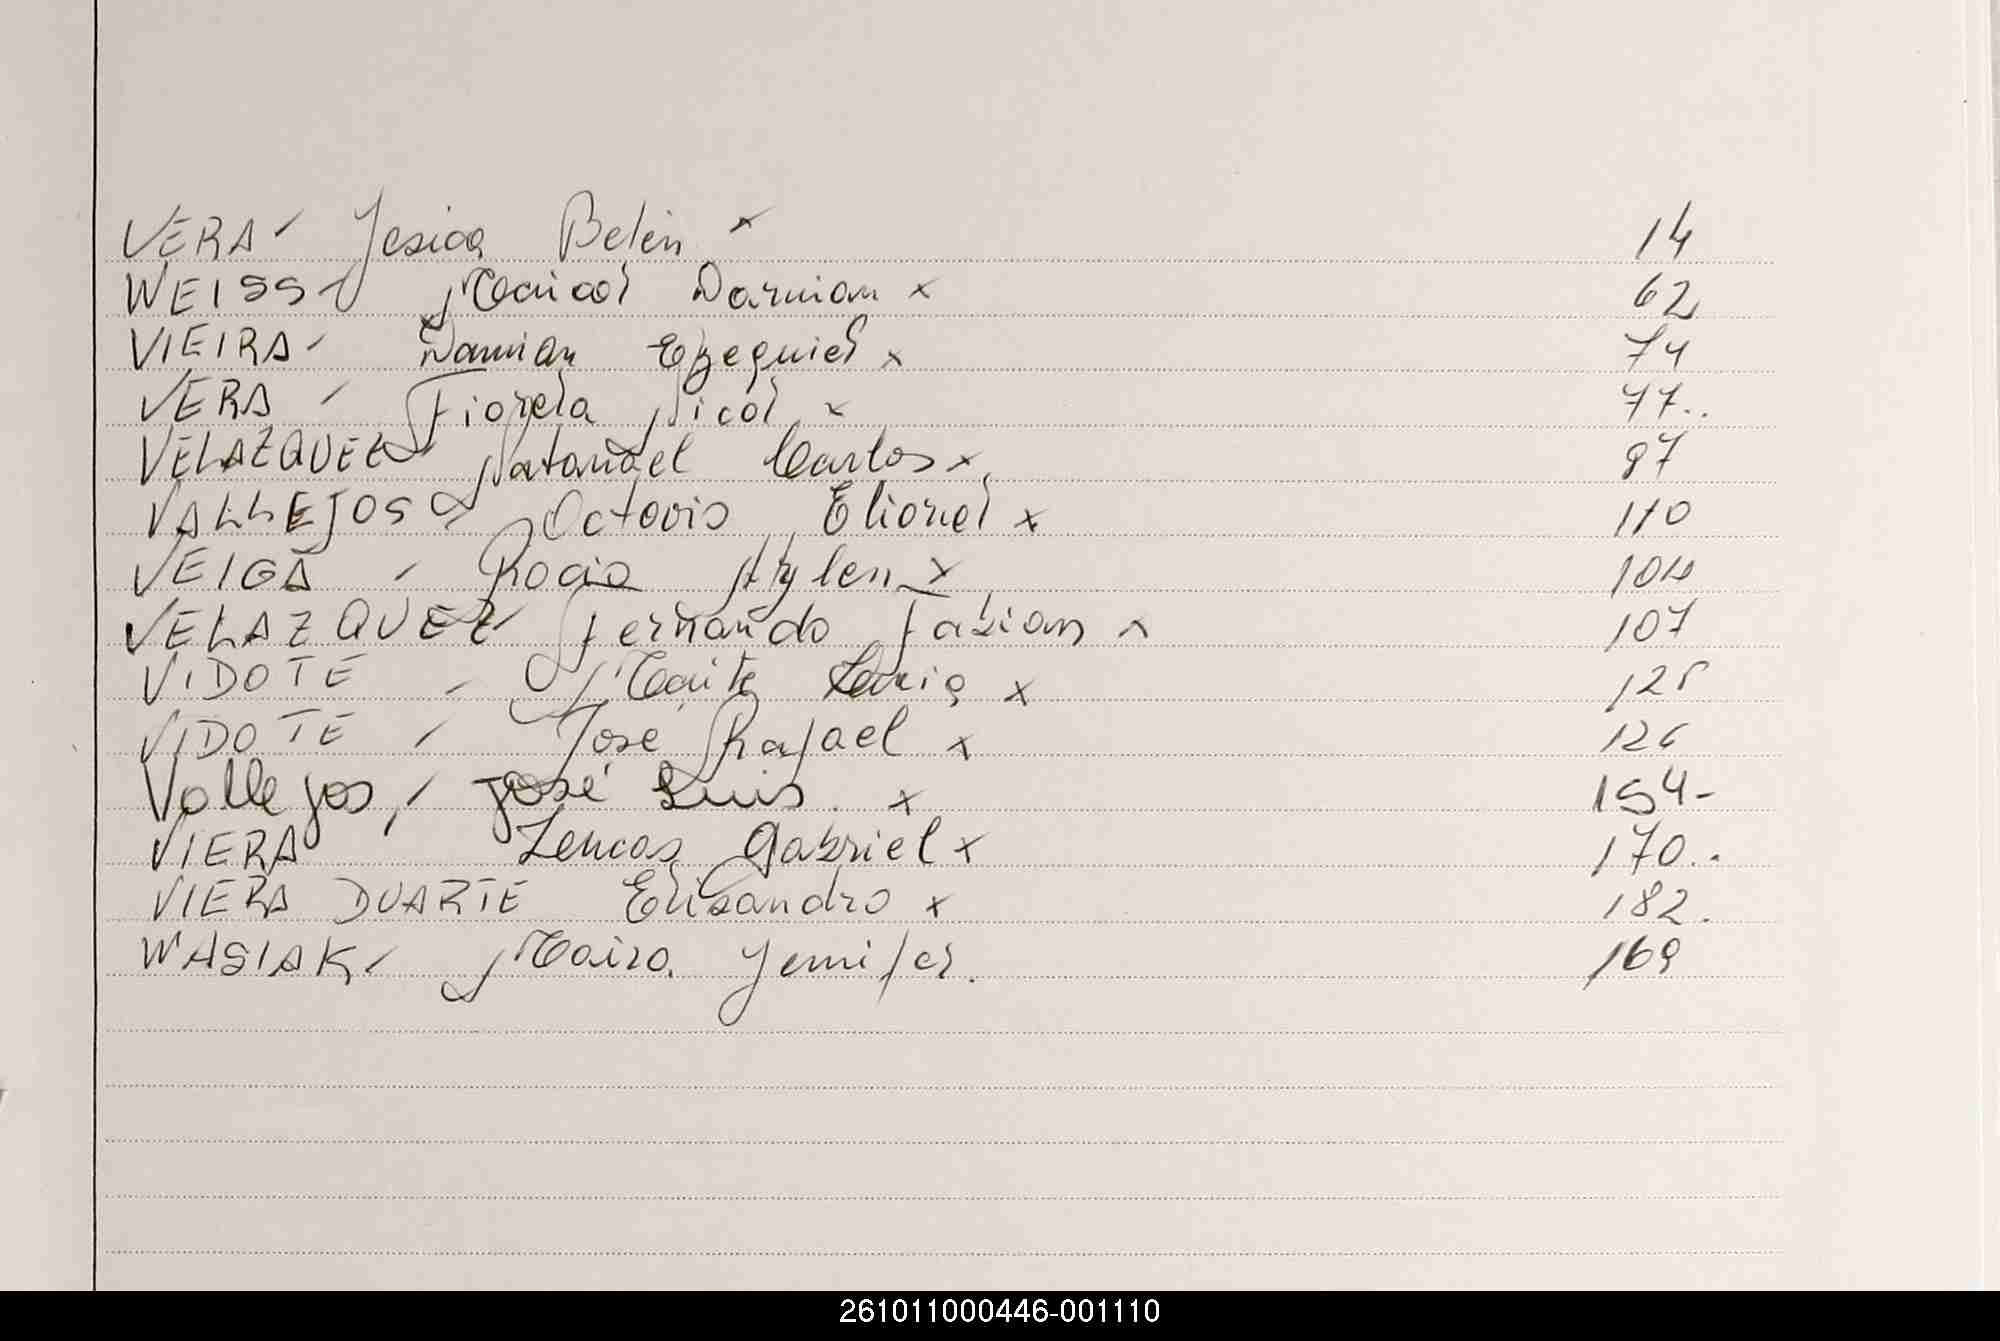 VERA - Jesica Belén x 14
WEISS - Maicol Damian x 62
VIEIRA - Damian Ezequiel x 74
VERA - Fiorela Nicol x 77..
VELAZQUEZ - Natanael Carlos x 87
VALLEJOS - Octavio Elionel x 110
VEIGA - Rocio Aylen x 104
VELAZQUEZ - Fernando Fabian x 107
VIDOTE - Maite x 125
VIDOTE - José Rafael x 126
Vallejos, - José Luis. x 154-
VIERA Lencos Gabriel x 170..
VIERA DUARTE Elisandro x 182.
WASIAK - Maira Yenifer. 169
261011000446-001110